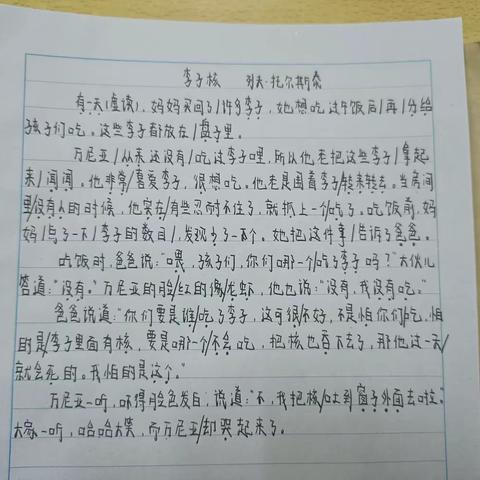 李子核 列夫·托尔斯泰
有一天(虚读),妈妈买回了/许多李子,她想吃过午饭后/再/分给
孩子们吃。这些李子都放在/盘子里。
万尼亚/从来还没有/吃过李子哩,所以他老把这些李子/拿起
来/闻闻。他非常/喜爱李子,很想吃。他老是围着李子/转来转去。当房间
里/没有人的时候,他实在/有些忍耐不住了,就抓上一个/吃了。吃饭前,妈
妈/点了一下/李子的数目/,发现少了一个。她把这件事/告诉了爸爸。
吃饭时,爸爸说:“喂,孩子们,你们哪一个/吃了李子吗?”大伙儿
答道:“没有。”万尼亚的脸/红的像/龙虾,他也说:“没有,我没有吃。”
爸爸说道:“你们要是谁/吃了李子,这可很/不好,不是怕你们/吃,怕
的是/李子里面有核,要是哪一个/不会吃,把核也吞下去了,那他过一天/
就会死的。我怕的是这个。”
万尼亚一听,吓得脸色发白,说道:“不,我把核/吐到窗子外面去啦。”
大家一听,哈哈大笑,而万尼亚/却哭起来了。